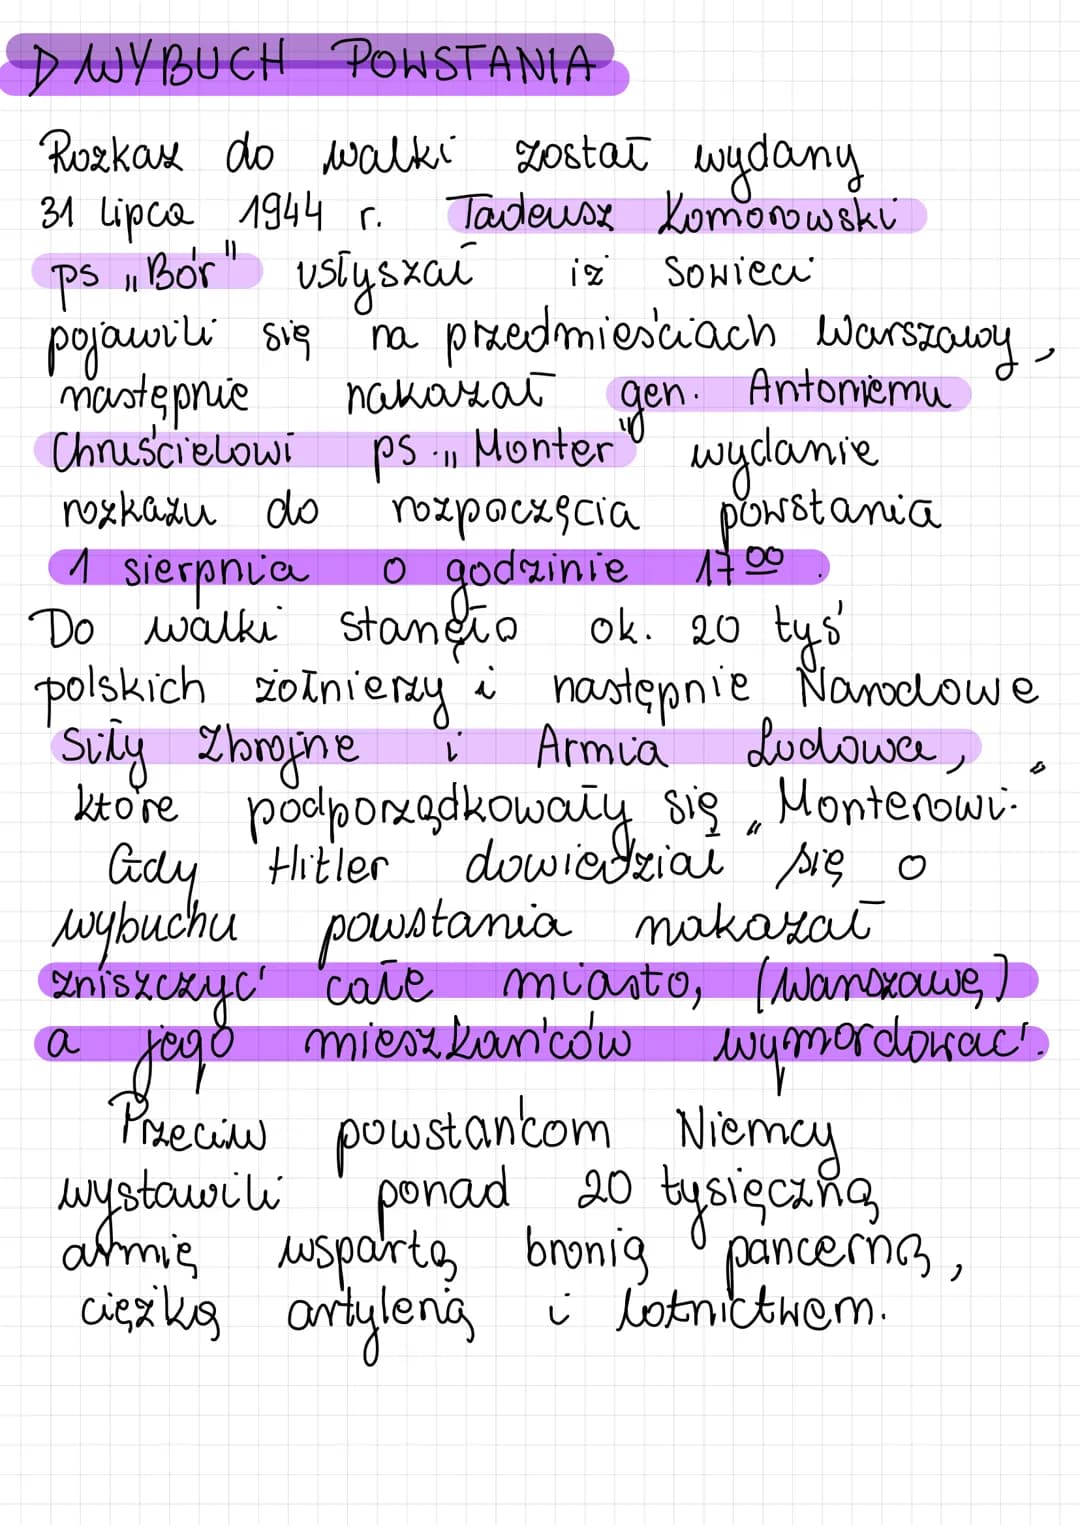 ▷ WYBUCH POWSTANIA
Rozkaz do walki został wydany
31 lipca 1944 r. Tadeusz Komorowski
ps „Bór" usłyszał iż Sowieci
pojawili się na przedmieściach Warszawy,
następnie nakazał gen. Antoniemu
Chruścielowi ps. „Monter" wydanie
rozkazu do rozpoczęcia powstania
1 sierpnia o godzinie 17⁰⁰.
Do walki stanęło ok. 20 tyś
polskich żołnierzy i następnie Narodowe
Siły Zbrojne i Armia Ludowa,
które podporządkowały się „Monterowi."
Gdy Hitler dowiedział się o
wybuchu powstania nakazał
zniszczyć całe miasto, (Warszawę)
a jego mieszkańców wymordować.
Przeciw powstańcom Niemcy
wystawili ponad 20 tysięczną
armię wspartą bronią pancerną,
ciężką artylerią i lotnictwem.